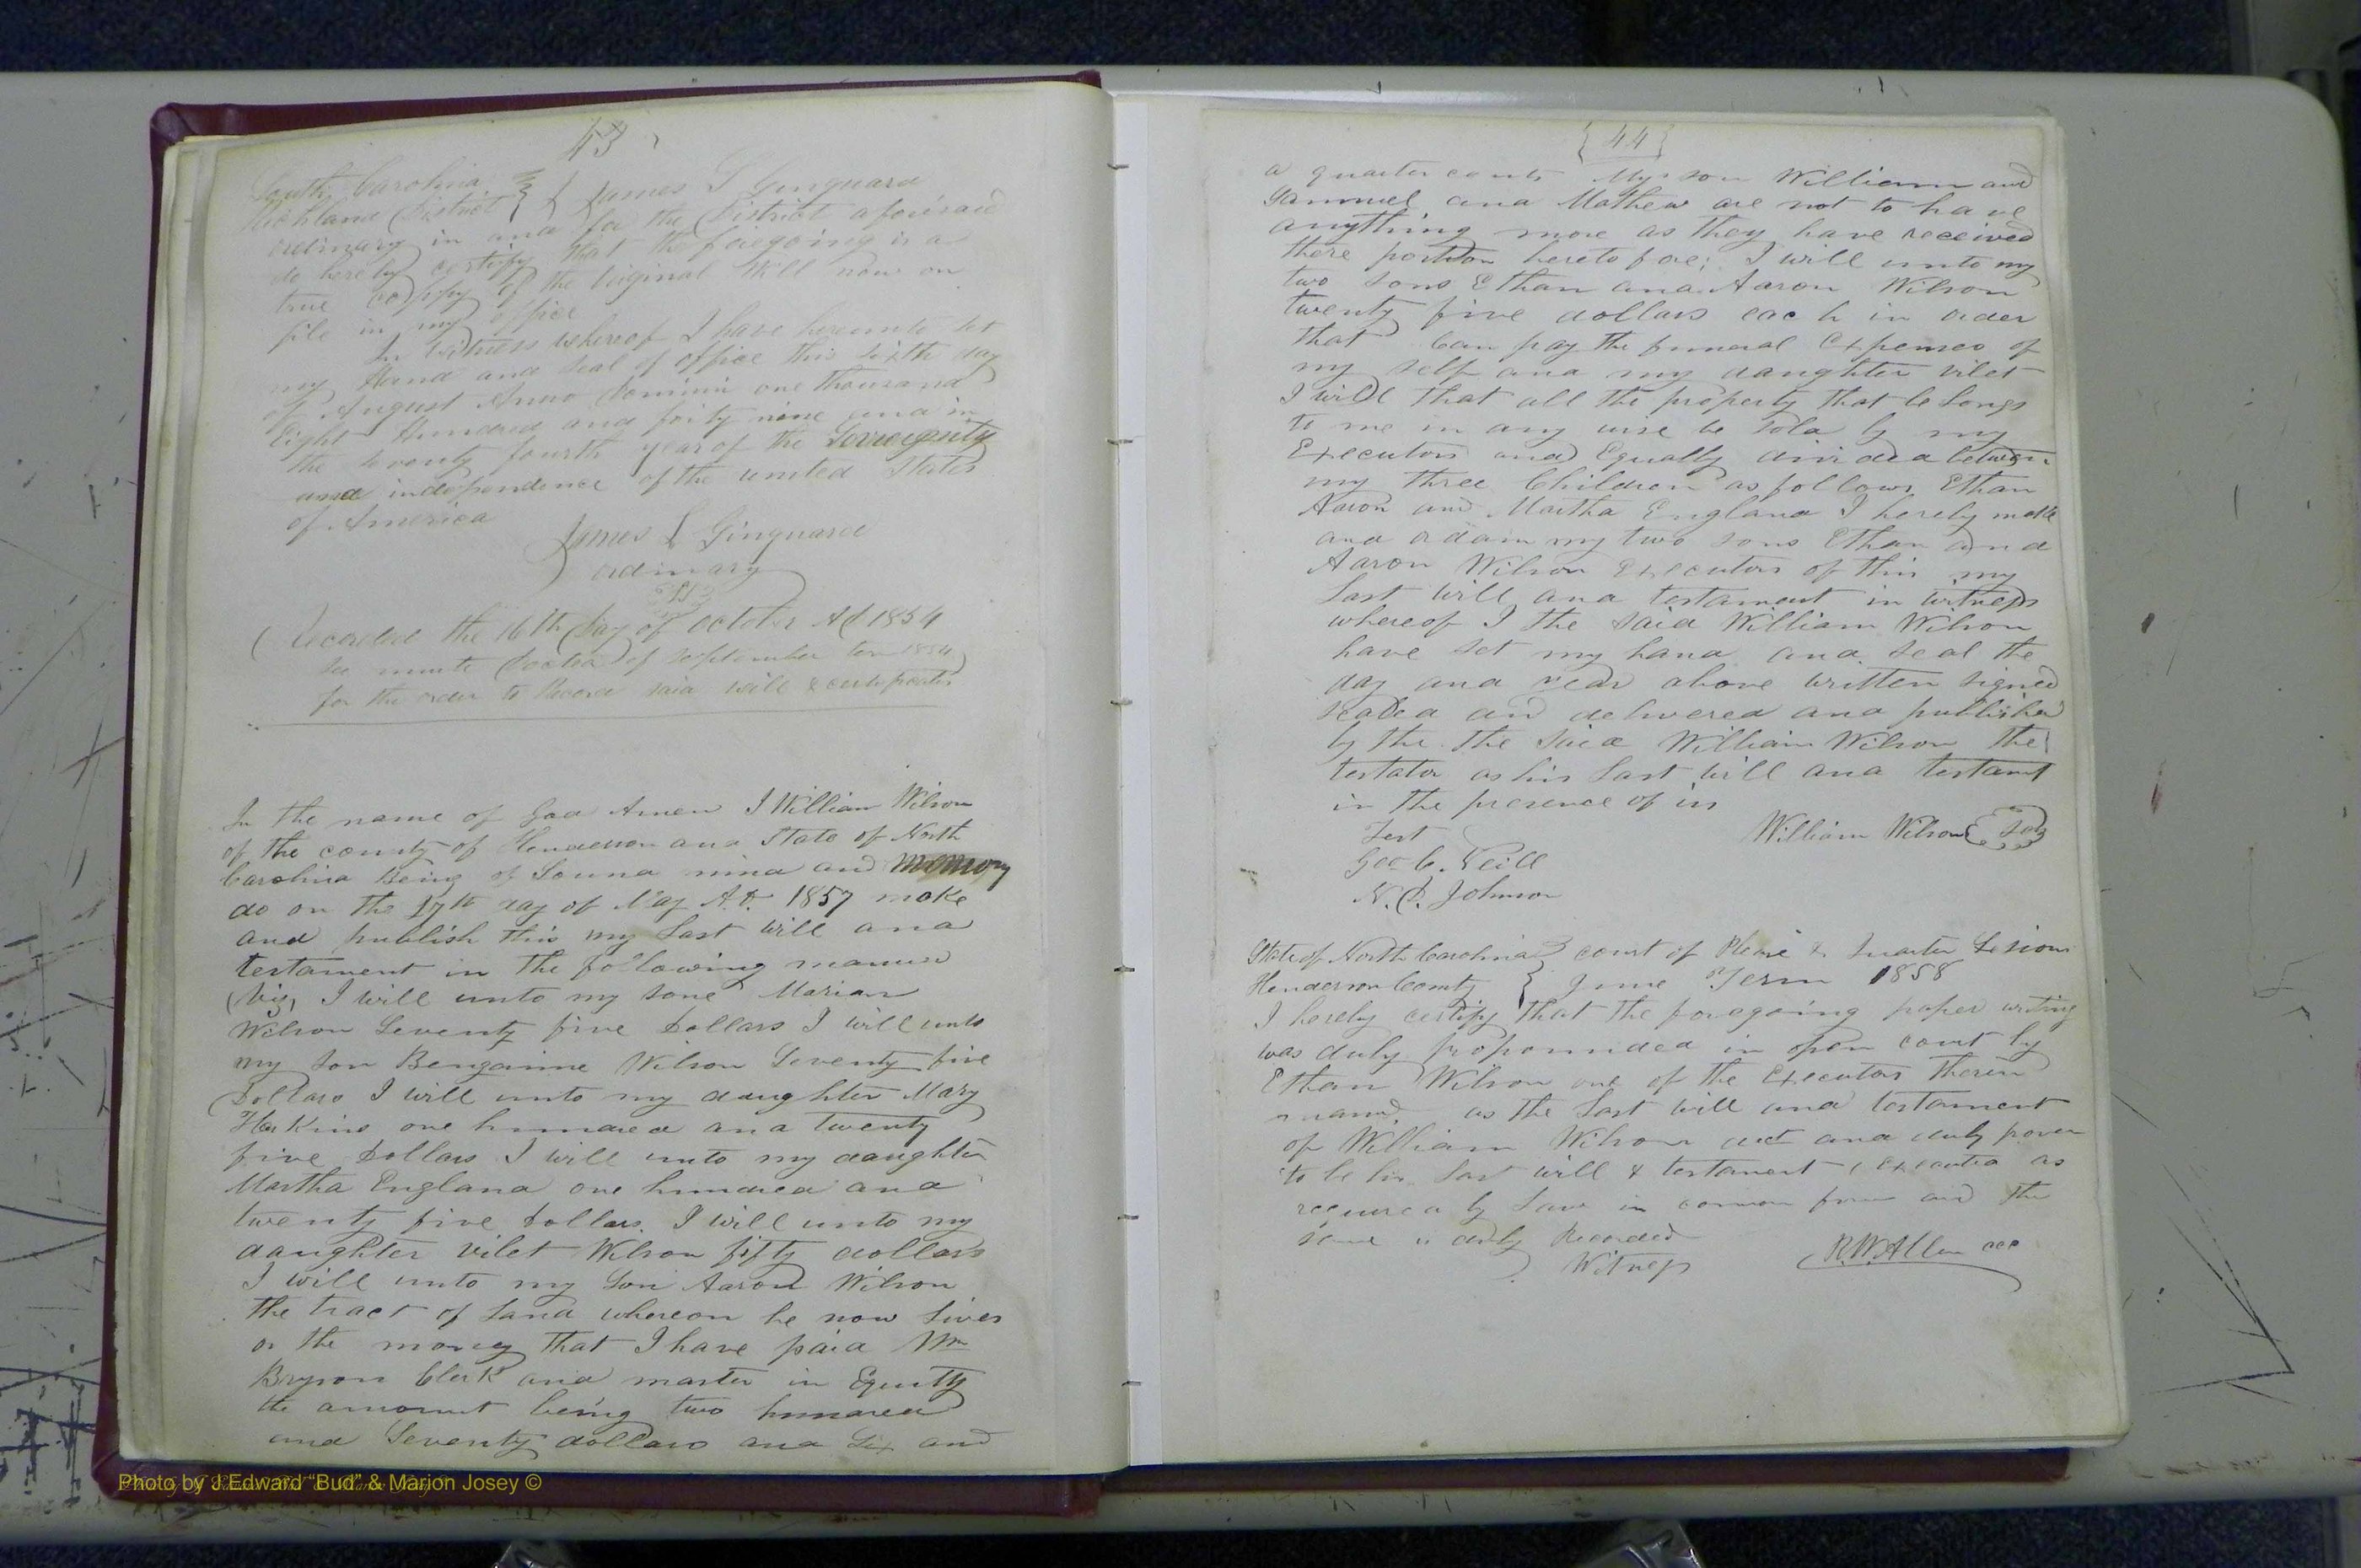 43
South Carolina
Richland District } James S Guignard
ordinary in and for the District aforesaid
do hereby certify that the foregoing is a
true coppy of the Original Will now on
file in my office
In Witness whereof I have hereunto set
my Hand and seal of office this sixth day
of August Anno Domini one thousand
Eight Hundred and forty nine and in
the seventy fourth year of the
and independence of the united States
of America
James S Guignard
ordinary
Recorded the 16th Day of October AD 1854
See minute Docket of September term 1854
for the order to Record said will & certificates
In the name of God Amen I William Wilson
of the county of Henderson and State of North
Carolina Being of Sound mind and Memory
do on the 17th day of May A.D. 1857 make
and publish this my Last Will and
testament in the following manner
(Viz) I will unto my sone Marian
Wilson Seventy five Dollars I will unto
my son Bengamine Wilson Seventy five
Dollars I will unto my daughter Mary
Harkins one hundred and twenty
five Dollars I will unto my daughter
Martha England one hundred and
twenty five Dollars. I will unto my
daughter vilet Wilson fifty dollars
I will unto my Son Aaron Wilson
the tract of Land whereon he now lives
or the money that I have paid Mr
Bryson Clerk and master in Equity
the amount being two hundred
and Seventy dollars and Six and
{44}
a quarter cents My son William and
Sammuel and Mathew are not to have
anything more as they have received
there portion heretofore; I will unto my
two sons Ethan and Aaron Wilson
twenty five dollars each in order
that Can pay the funeral Expenses of
my self and my daughter vilet
I will that all the property that belongs
to me in any wise be sold by my
Executors and Equally divided between
my three Children as follows Ethan
Aaron and Martha England I hereby make
and ordain my two sons Ethan and
Aaron Wilson Executors of this my
Last will and testament in witness
whereof I the said William Wilson
have set my hand and seal the
day and year above written signed
sealed and delivered and published
by the the said William Wilson the
testator as his Last will and testamt
in the presence of us
William Wilson {Seal}
Test
Geo. C. Neill
N. P. Johnson
State of North Carolina } court of Pleas & Quarter Sesions
Henderson County } June Term 1858
I hereby certify that the foregoing paper writing
was duly propounded in open court by
Ethan Wilson one of the Executors therein
named as the Last will and testament
of William Wilson decd and duly proven
to be his Last will & testament & Executed as
required by Law in common form and the
same is duly Recorded
Witness R. W. Allen ccc
Photo by J Edward "Bud" & Marion Josey ©